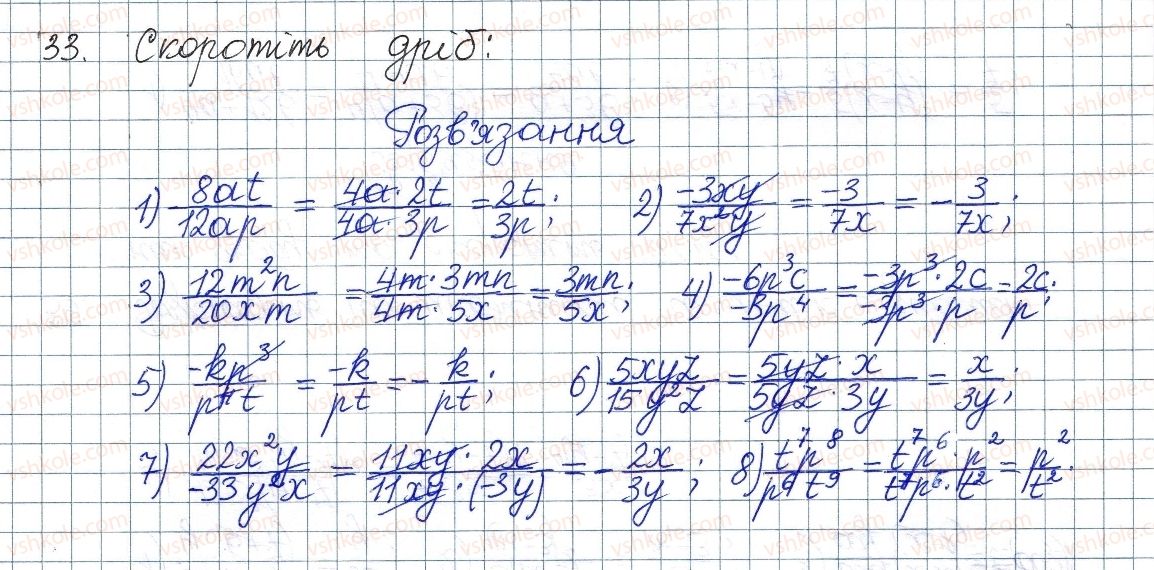 33. Скоротіть дріб:
Розв'язання
1) 8at/12ap = 4a·2t/4a·3p = 2t/3p; 2) -3xy/7x²y = -3/7x = -3/7x;
3) 12m²n/20xm = 4m·3mn/4m·5x = 3mn/5x; 4) -6p³c/-3p⁴ = -3p³·2c/-3p³·p = 2c/p;
5) -kp³/p⁴t = -k/pt = -k/pt; 6) 5xyz/15y²z = 5yz·x/5yz·3y = x/3y;
7) 22x²y/-33y²x = 11xy·2x/11xy·(-3y) = -2x/3y; 8) t⁷p⁸/p⁶t⁹ = t⁷p⁶·p²/t⁷p⁶·t² = p²/t².